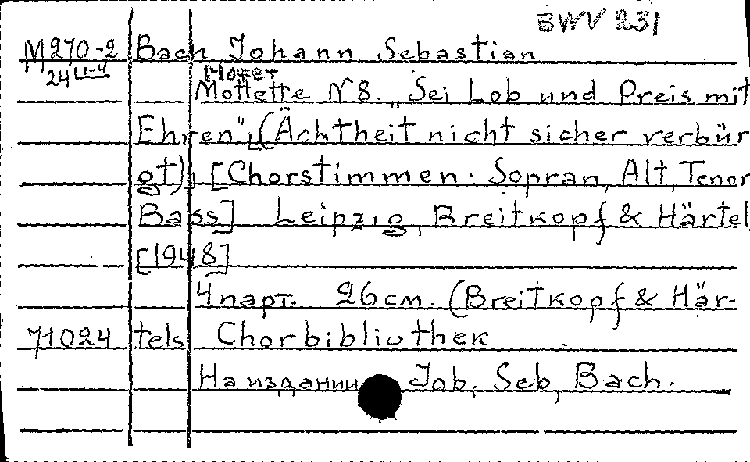 BWV 231
M270-2 Bach Johann Sebastian
24 ц-4 Мотет
Mottette N8. „Sei Lob und Preis mit
Ehren", (Ächtheit nicht sicher verbür
gt), [Chorstimmen. Sopran, Alt, Tenor
Bass] Leipzig, Breitkopf & Härtel
[1948]
4 парт. 26 см. (Breitkopf & Här-
71024 tels Chorbibliothek
На издании Joh, Seb, Bach.